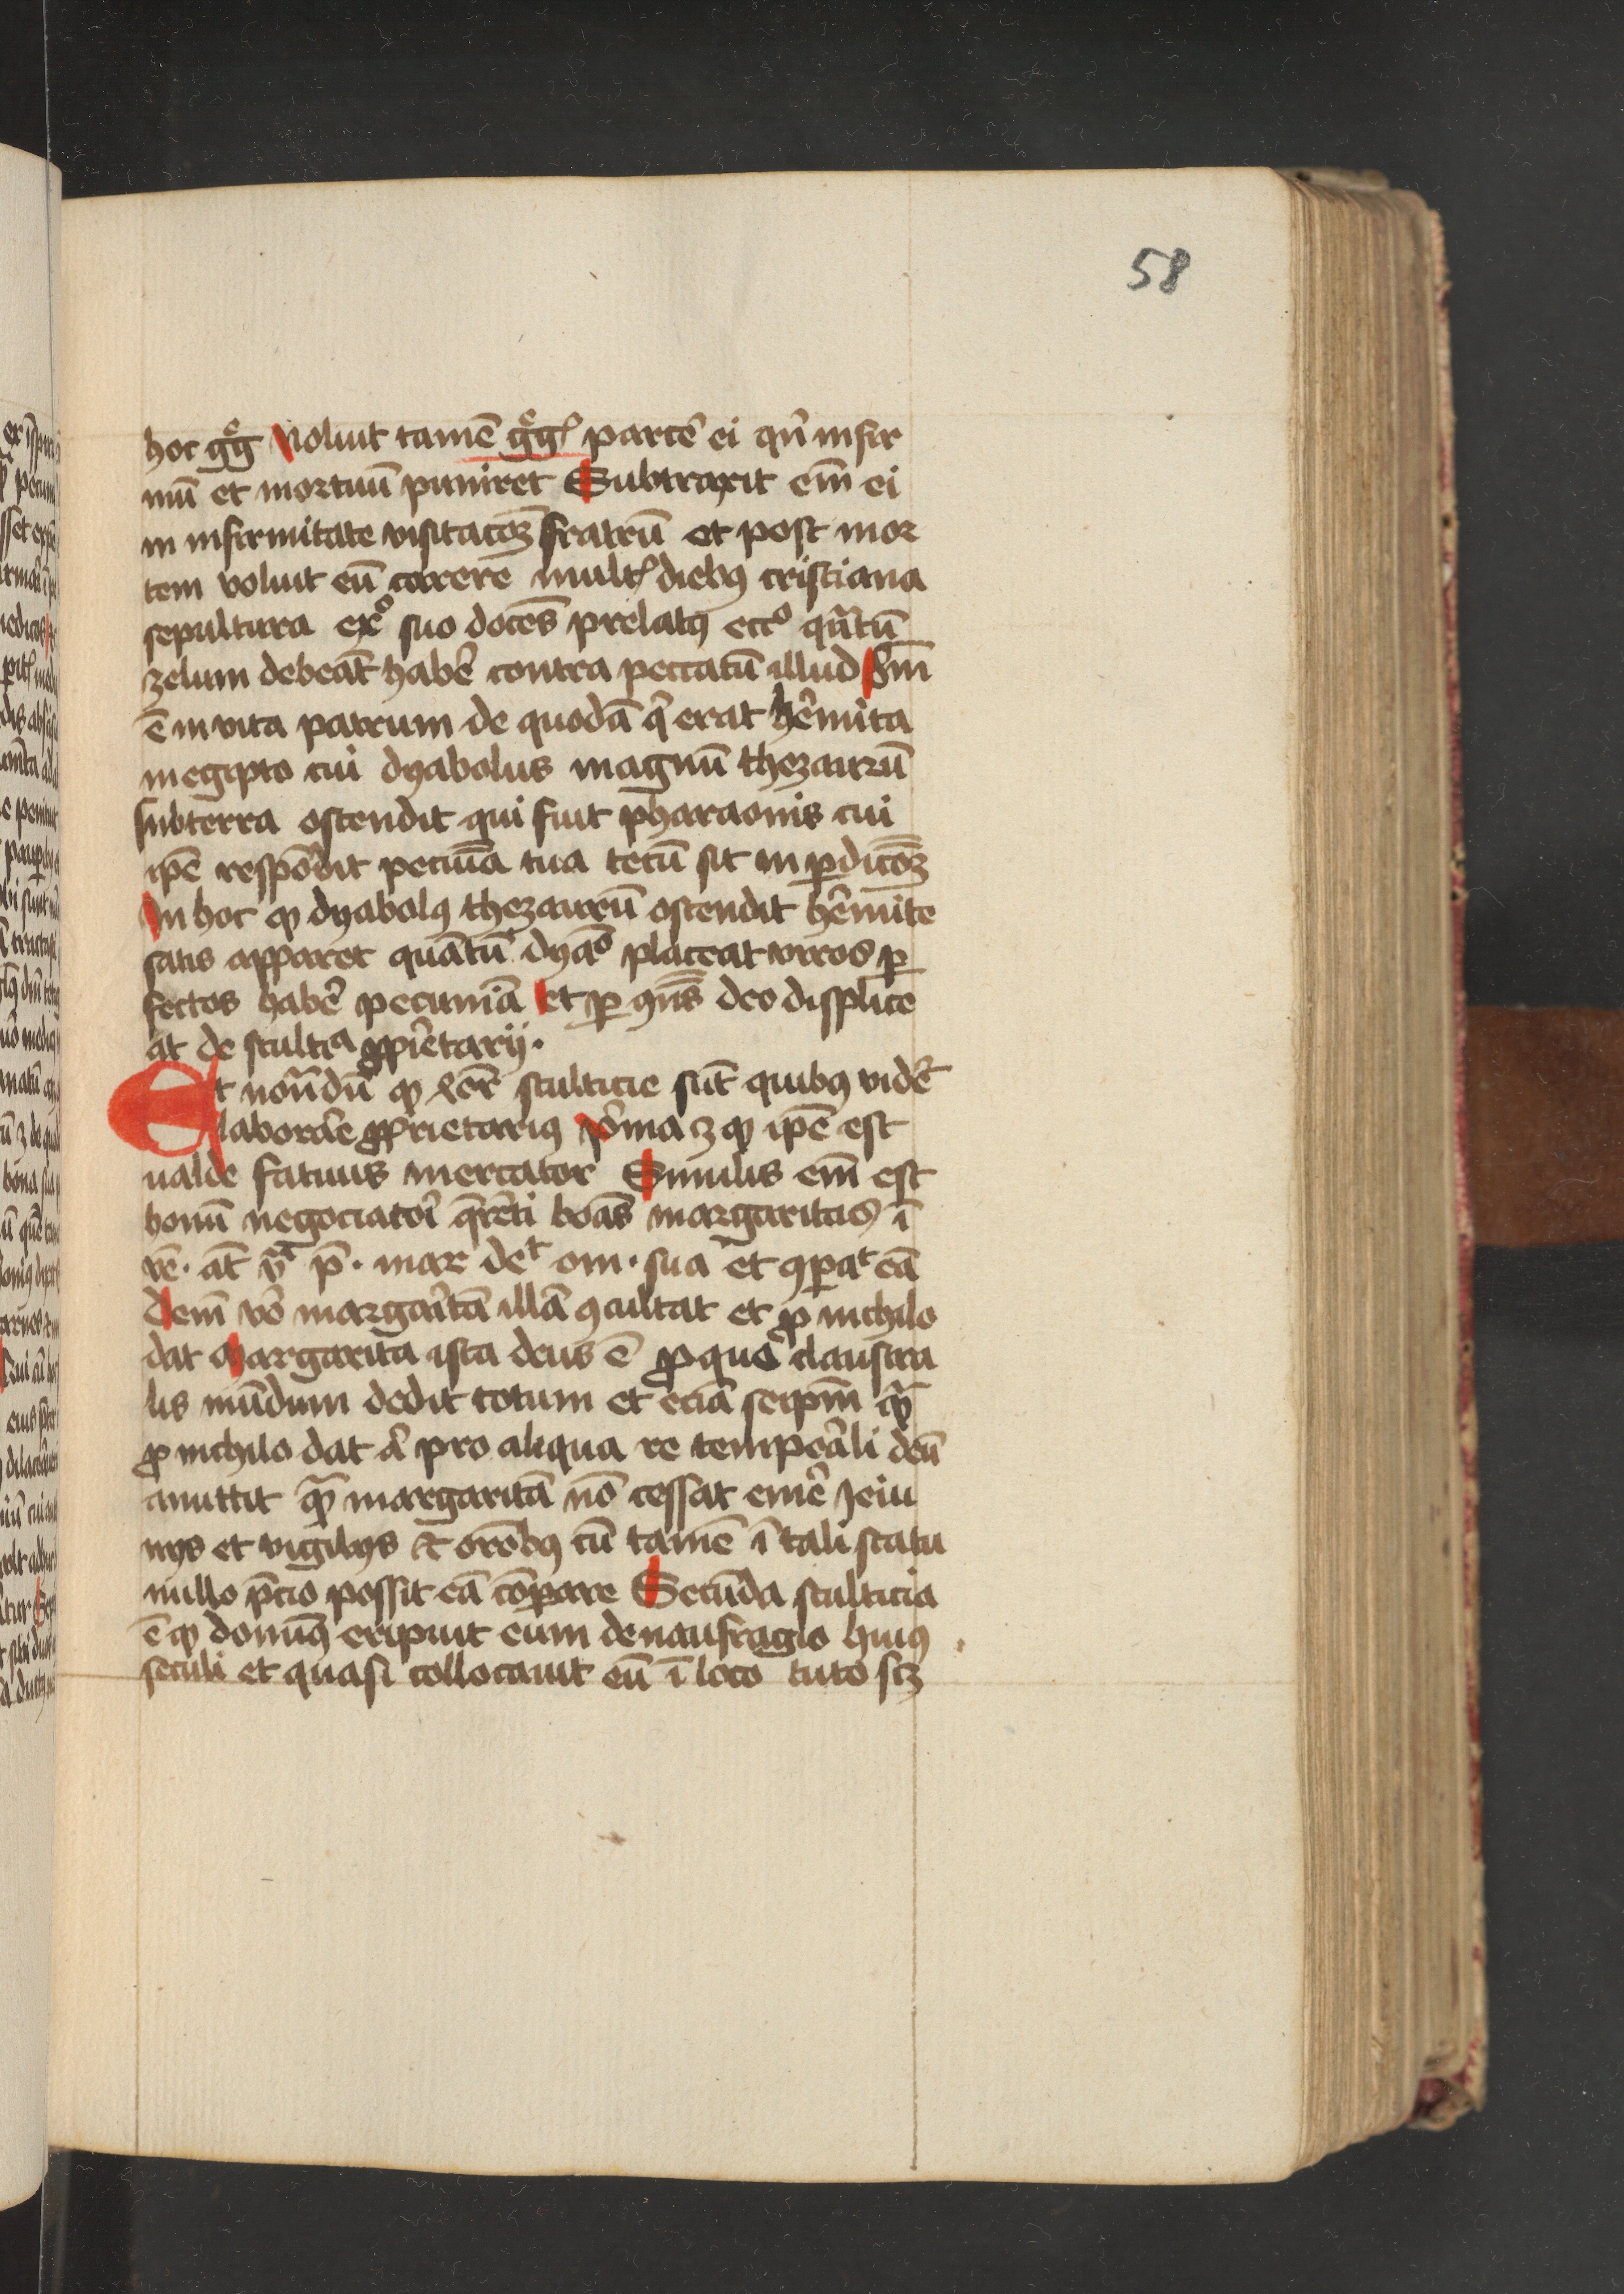 58
hoc gͦg Noluit tamē gͦgꝰ parcē ei qn̄ infir
mū et mortuū puniret Subtraxit em̄ ei
in infirmitate visitacōꝫ fratrū et post mor
tem voluit eū carere multꝭ diebꝰ cristiana
sepultura exͦ suo docēs prelatꝭ eccͦ qn̄tū
zelum debeāt habē contra peccatū illud Sīm̄
ē in vita patrum de quodā qͥ erat hēmita
in egipto cui dyabolus magnū thezaurū
sub terra ostendit qui fuit pharaonis cui
ip̄e respōdit pecūia tua tecū sit in ꝑdicōꝫ
In hoc ꝙ dyabolꝰ thezaurū ostendit hēmite
satis apparet quātū dyaͦ placeat viros ꝑ
fectos habē pecuniā et ꝑ ꝯn̄s deo displice
at de stultᵃ ꝓpͥetarij.
Et notādū ꝙ xcēr stulticie sūt quibꝰ vidēr
laborāe ꝓprietariꝰ pͥma ꝫ ꝙ ip̄e est
ualde fatuus mercator Similis em̄ est
homī negociatori q̄rēti boās margaritas ī
vē. āt vͣ p̄. mar deᵗ om. sua et ꝯpaᵗ eā
dem vō margaͥtā illā ꝯcultat et ꝓ nichilo
dat Margarita ista deus ē ꝓ quo claustra
lis mūdum dedit totum et eciā seip̄m qͣ
ꝓ nichilo dat cū pro aliqua re tempōali deū
amittit qͣ margaritā nō cessat emē Jeiu
nijs et vigilijs & orōbꝰ cū tamē ī tali statu
nullo p̄cio possit eā cōparare Secūda stulticia
ē ꝙ domīꝰ eripuit eum de naufragio huiꝰ
seculi et quasi collocauit eū ī loco tuto scꝫ